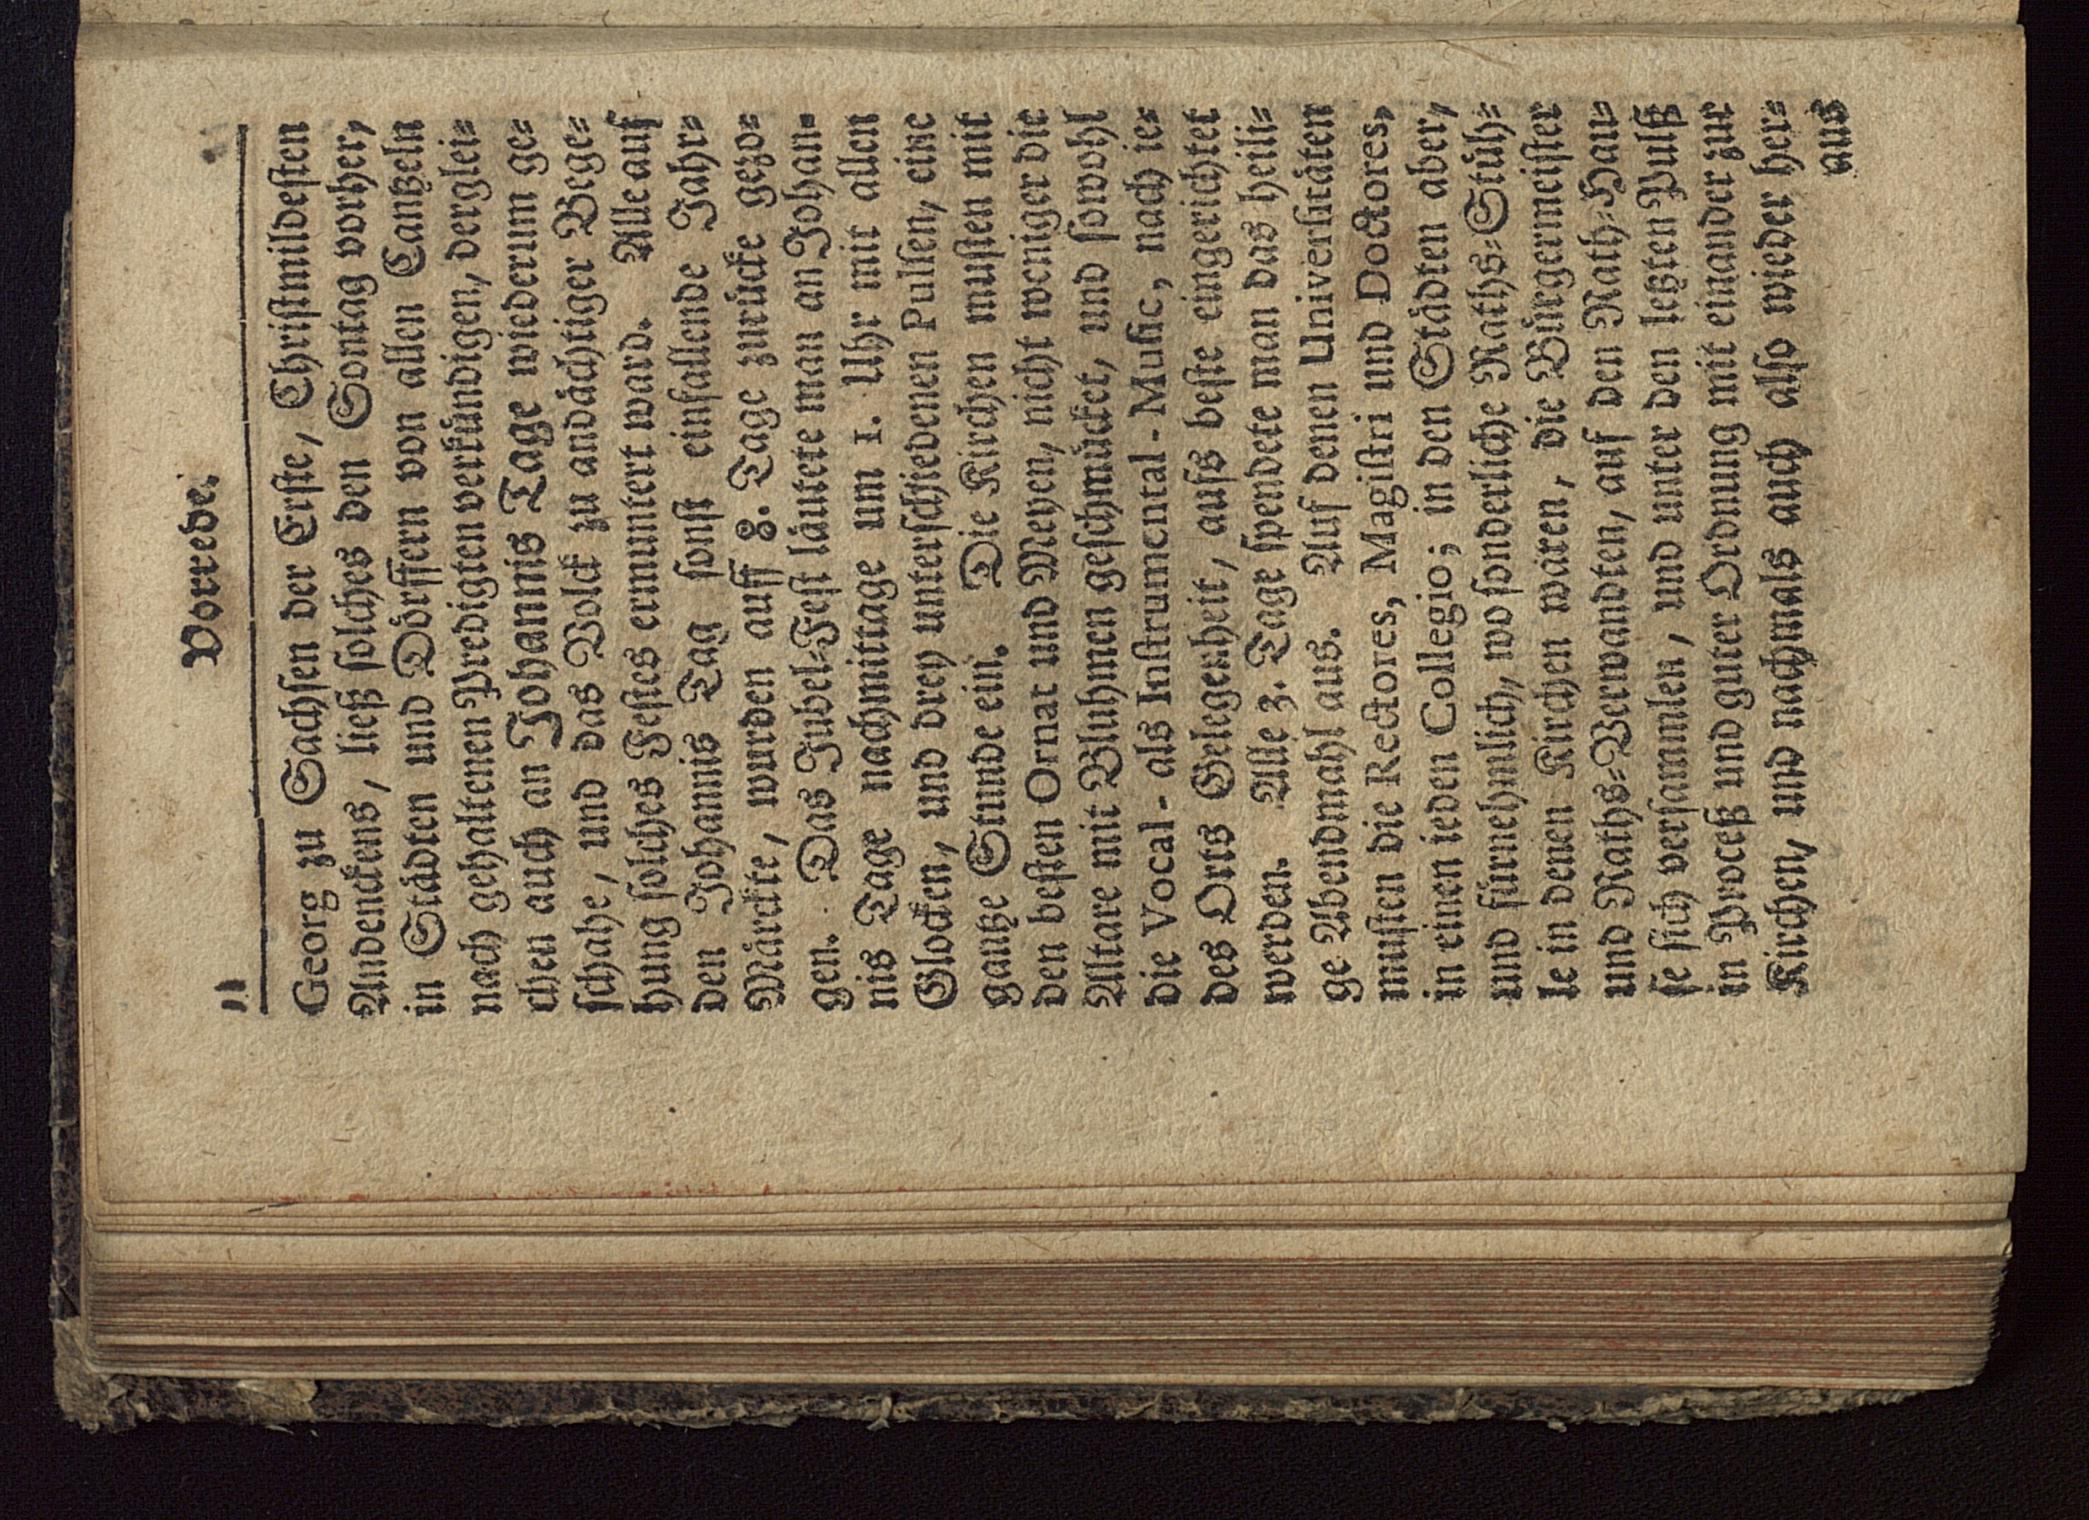 Vorrede.
Georg zu Sachsen der Erste, Christmildesten
Andenckens, ließ solches den Sontag vorher,
in Städten und Dörffern von allen Cantzeln
nach gehaltenen Predigten verkündigen, derglei-
chen auch an Johannis Tage wiederum ge-
schahe, und das Volck zu andächtiger Bege-
hung solches Festes ermuntert ward. Alle auf
den Johannis Tag sonst einfallende Jahr-
Märckte, wurden auff 8. Tage zurücke gezo-
gen. Das Jubel-Fest läutete man an Johan-
nis Tage nachmittage um 1. Uhr mit allen
Glocken, und drey unterschiedenen Pulsen, eine
gantze Stunde ein. Die Kirchen musten mit
den besten Ornat und Meyen, nicht weniger die
Altare mit Bluhmen geschmücket, und sowohl
die Vocal- als Instrumental-Music, nach ie-
des Orts Gelegenheit, aufs beste eingerichtet
werden. Alle 3. Tage spendete man das heili-
ge Abendmahl aus. Auf denen Universitäten
musten die Rectores, Magistri und Doctores,
in einen ieden Collegio; in den Städten aber,
und fürnehmlich, wo sonderliche Raths-Stüh-
le in denen Kirchen wären, die Bürgermeister
und Raths-Verwandten, auf den Rath-Hau-
se sich versammlen, und unter den letzten Pulß
in Proceß und guter Ordnung mit einander zur
Kirchen, und nachmals auch also wieder her-
aus